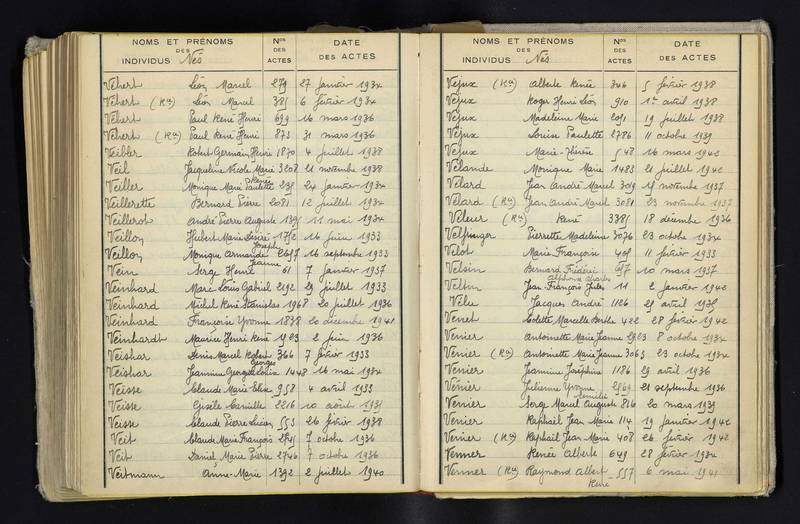 NOMS ET PRÉNOMS DES INDIVIDUS Nés
Nos DES ACTES
DATE DES ACTES
Véhert Léon Marcel 279 27 janvier 1934
Véhert (Ra) Léon Marcel 385 6 février 1934
Véhert Paul René Henri 699 16 mars 1936
Véhert (Ra) Paul René Henri 873 31 mars 1936
Veibler Robert Germain Henri 1870 4 juillet 1938
Veil Jacqueline Nicole Marie Renée 3208 21 novembre 1938
Veiller Monique Marie Paulette 235 24 janvier 1934
Veillerette Bernard Pierre 2081 12 juillet 1934
Veillerot André Pierre Auguste 1395 11 mai 1934
Veillon Hubert Marie Désiré Joseph 1752 16 juin 1933
Veillon Monique Armande Jeanne 2657 16 septembre 1933
Vein Serge Henri 61 7 janvier 1937
Veinhard Marc Louis Gabriel 2192 29 juillet 1933
Veinhard Michel René Stanislas 1968 20 juillet 1936
Veinhard Françoise Yvonne 1838 20 décembre 1941
Veinhardt Maurice Henri René 1923 2 juin 1936
Veishar Denis Marcel Robert Georges 366 7 février 1933
Veishar Jeannine Georgette 1448 16 mai 1934
Veisse Claude Marie 958 4 avril 1933
Veisse Gisèle Camille 2216 10 août 1935
Veisse Claude Pierre Lucien 553 26 février 1938
Veit Claude Marie François 2745 7 octobre 1936
Veit Daniel Marie Pierre 2746 7 octobre 1936
Veitmann Anne-Marie 1392 2 juillet 1940
NOMS ET PRÉNOMS DES INDIVIDUS Nés
Nos DES ACTES
DATE DES ACTES
Vejux (Ra) Alberte Renée 346 5 février 1938
Vejux Roger Henri Léon 910 1er avril 1938
Vejux Madeleine Marie 2051 19 juillet 1938
Vejux Louise Paulette 2786 11 octobre 1939
Vejux Marie-Thérèse 548 16 mars 1942
Vélande Monique Marie 1483 21 juillet 1942
Vélard Jean André Marcel 3019 15 novembre 1937
Vélard (Ra) Jean André Marcel 3081 23 novembre 1937
Veleur (Ra) René 3385 18 décembre 1936
Velfringer Pierrette Madeleine 3076 23 octobre 1934
Velot Marie Françoise 405 11 février 1933
Velsin Bernard Frédéric 657 10 mars 1937
Veltin Jean François Jules Alphonse Charles 11 2 janvier 1942
Vélu Jacques André 1126 25 avril 1935
Venet Colette Marcelle Berthe 422 28 février 1942
Venier Antoinette Marie Jeanne 2923 8 octobre 1934
Venier (Ra) Antoinette Marie Jeanne 3065 23 octobre 1934
Venier Jeannine Joséphine 1186 29 avril 1936
Vénier Julienne Yvonne 2569 21 septembre 1936
Venier Serge Marcel Auguste Camille 816 20 mars 1939
Venier Raphaël Jean Marie 114 19 janvier 1942
Venier (Ra) Raphaël Jean Marie 408 26 février 1942
Venner Renée Alberte 649 28 février 1934
Venner (Ra) Raymond Albert René 557 6 mai 1941